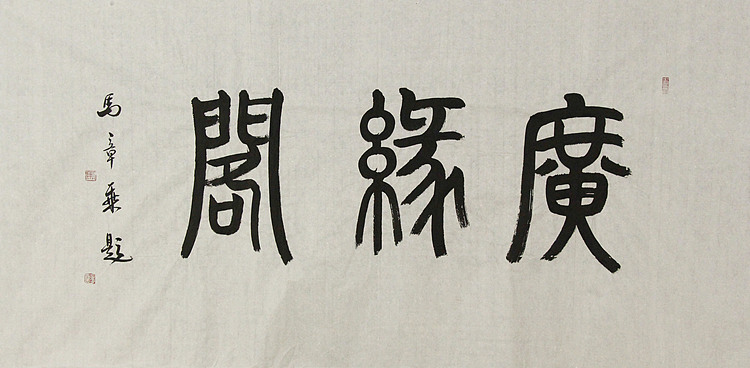 廣緣閣
馬章乘題